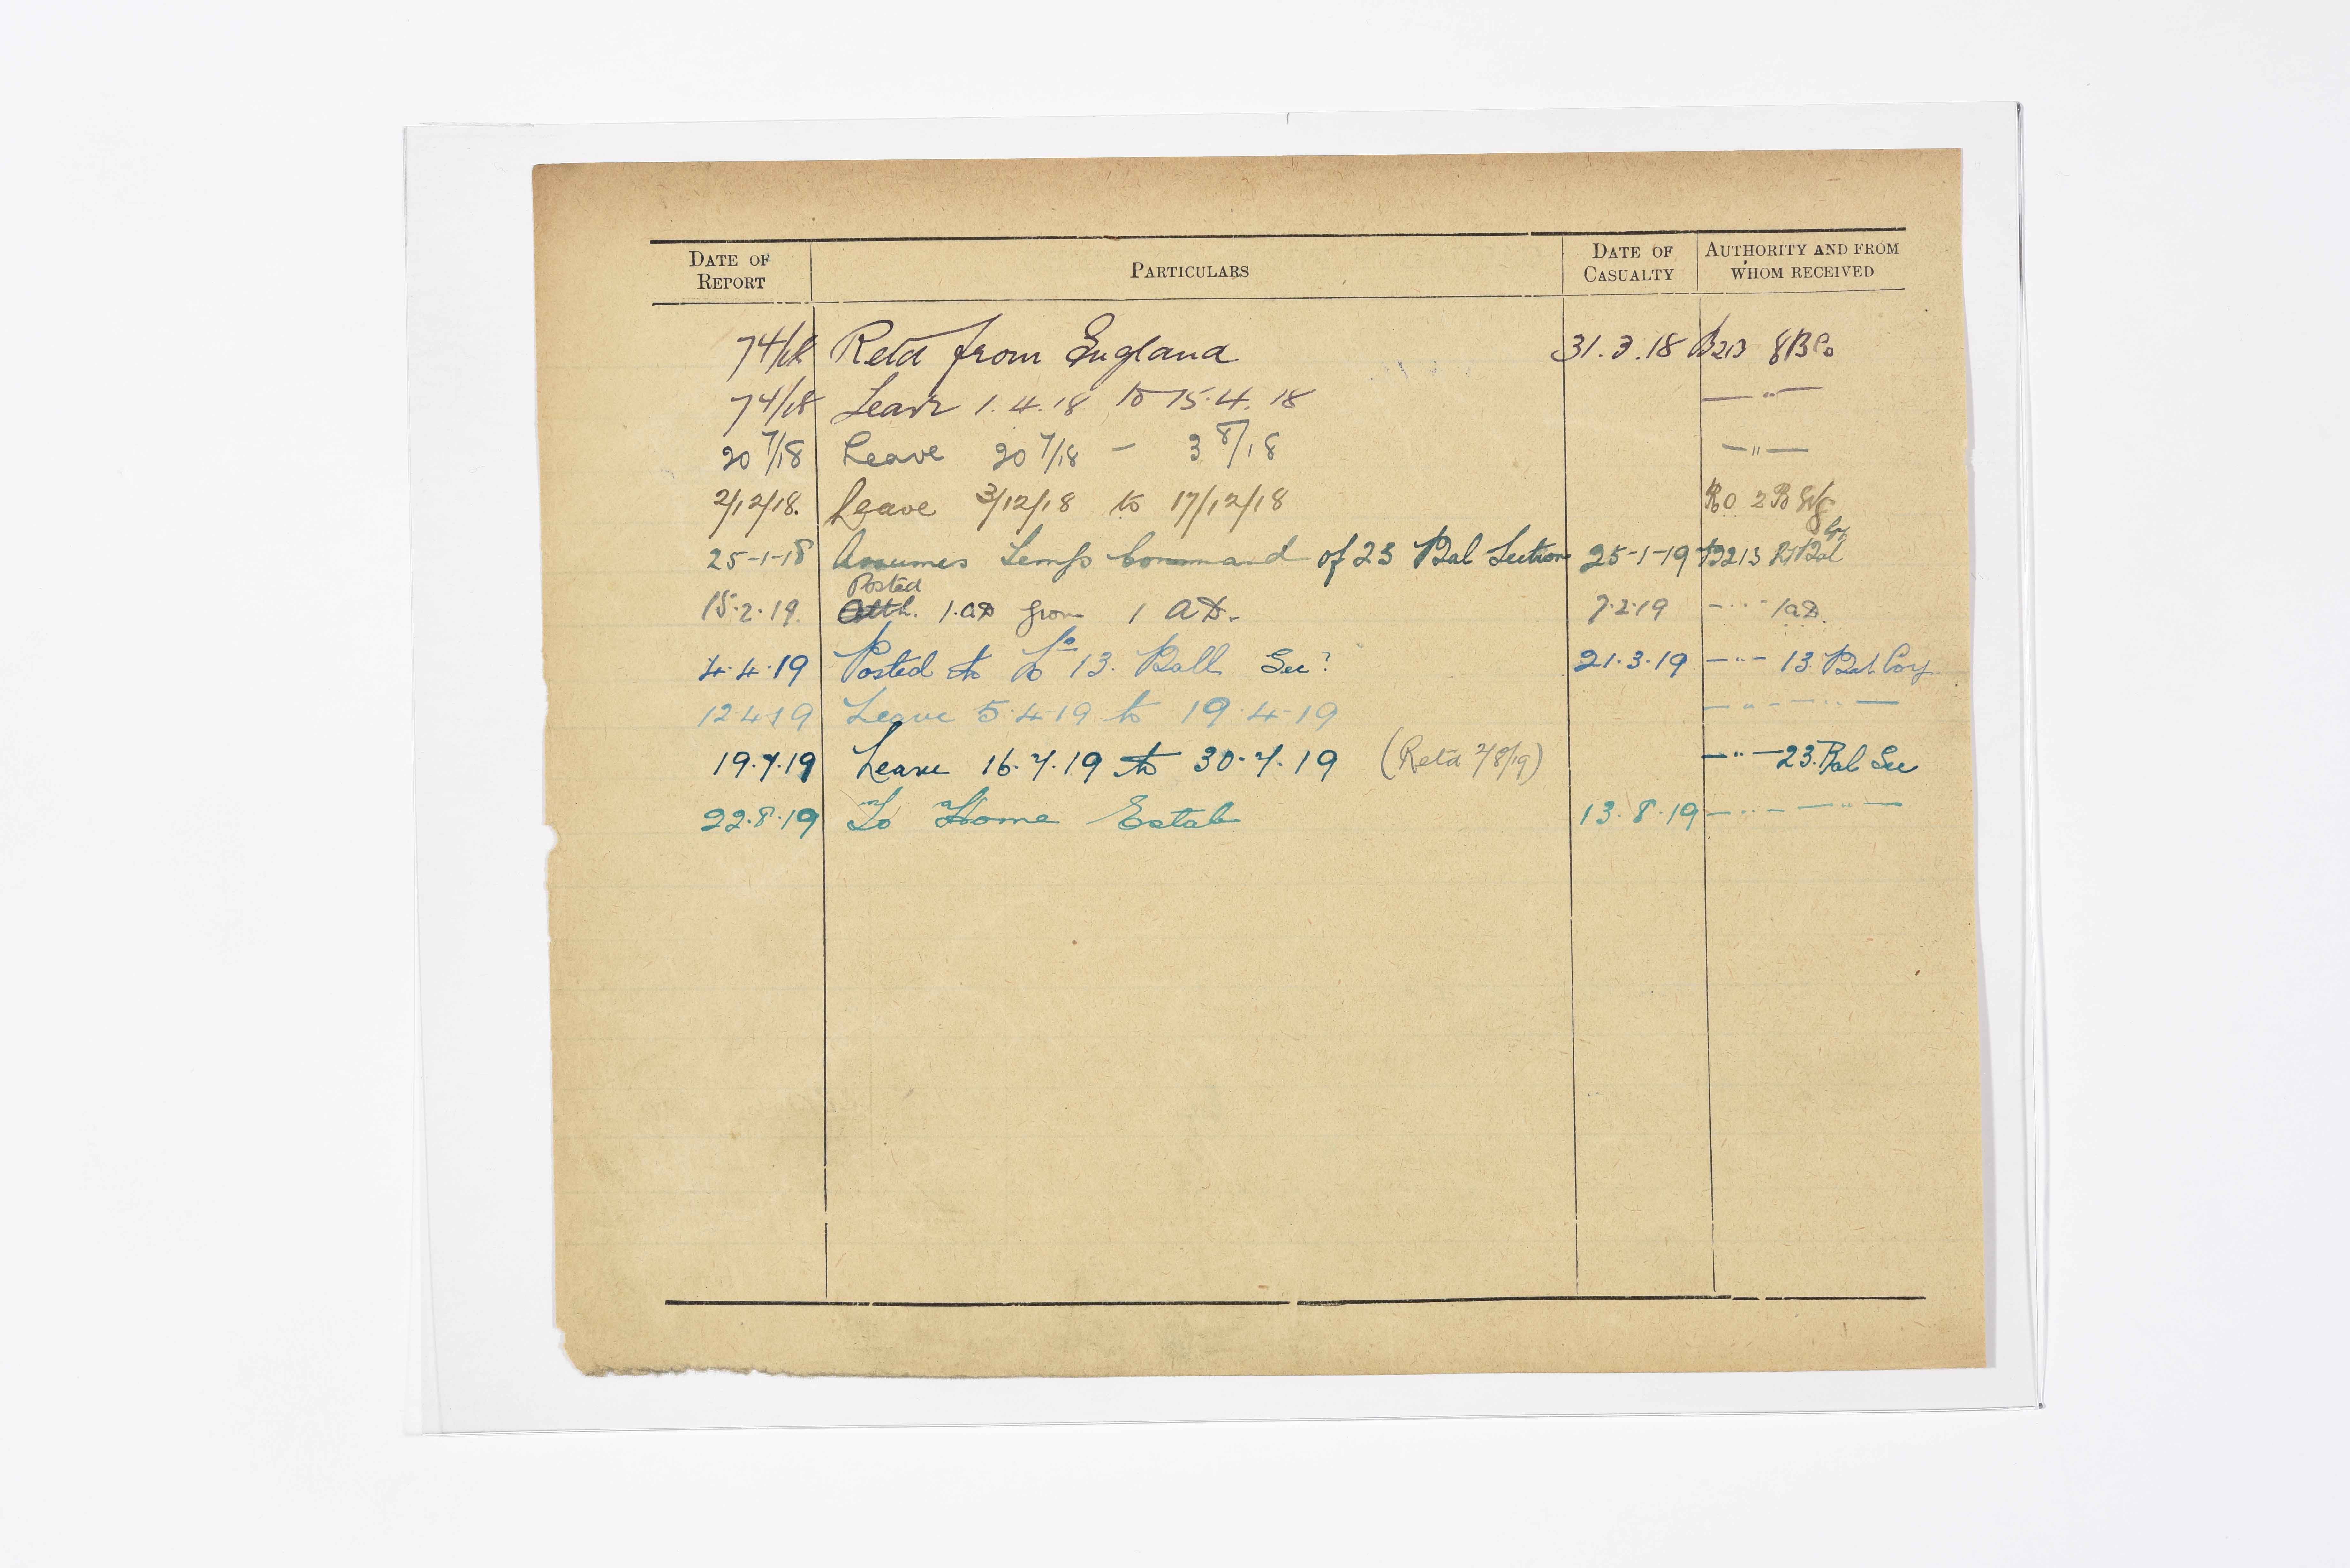 DATE OF REPORT PARTICULARS DATE OF CASUALTY AUTHORITY AND FROM WHOM RECEIVED
7 4/18 Retd from England 31.3.18 B213 8 B Co
7 4/18 Leave 1.4.18 to 15.4.18 — " —
20 7/18 Leave 20 7/18 — 3 8/18 — " —
2/12/18. Leave 3/12/18 to 17/12/18 RO 2 B Wg
25-1-18 Assumes Temp Command of 23 Bal Section 25-1-19 B213 Bal Coy
15.2.19. Posted Atth. 1.AD from 1 AD. 7.2.19 — " — 1 AD.
4.4.19 Posted to No 13. Ball Sec? 21.3.19 — " — 13. Bal. Coy
12 4 19 Leave 5.4.19 to 19.4.19 — " — — " —
19.7.19 Leave 16.7.19 to 30.7.19 (Retd 2/8/19) — " — 23. Bal Sec
22.8.19 To Home Estab 13.8.19 — " — — " —